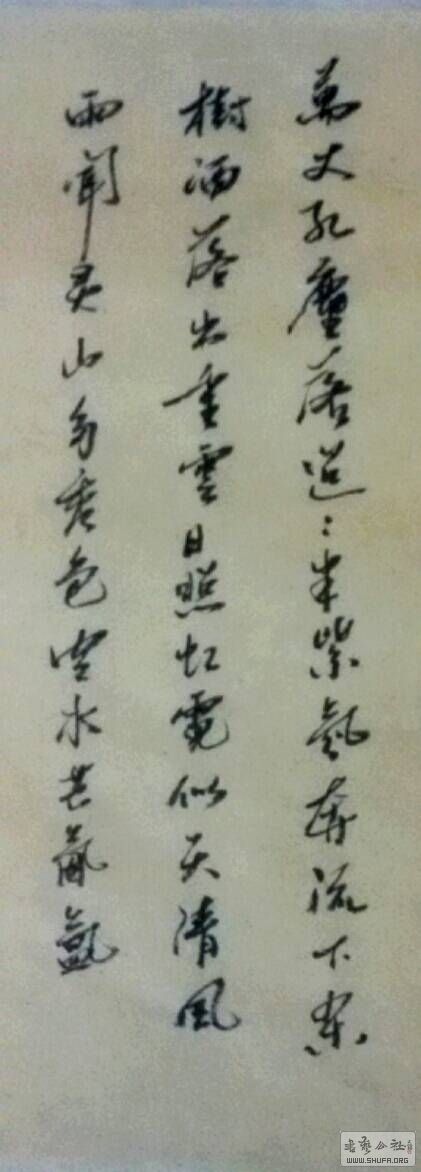 萬丈紅塵落迢〻半紫氛奔流下雜
樹洒落出重雲日照虹霓似天清風
雨聞灵山多秀色空水共氤氳
書藝公社
WWW.SHUFA.ORG